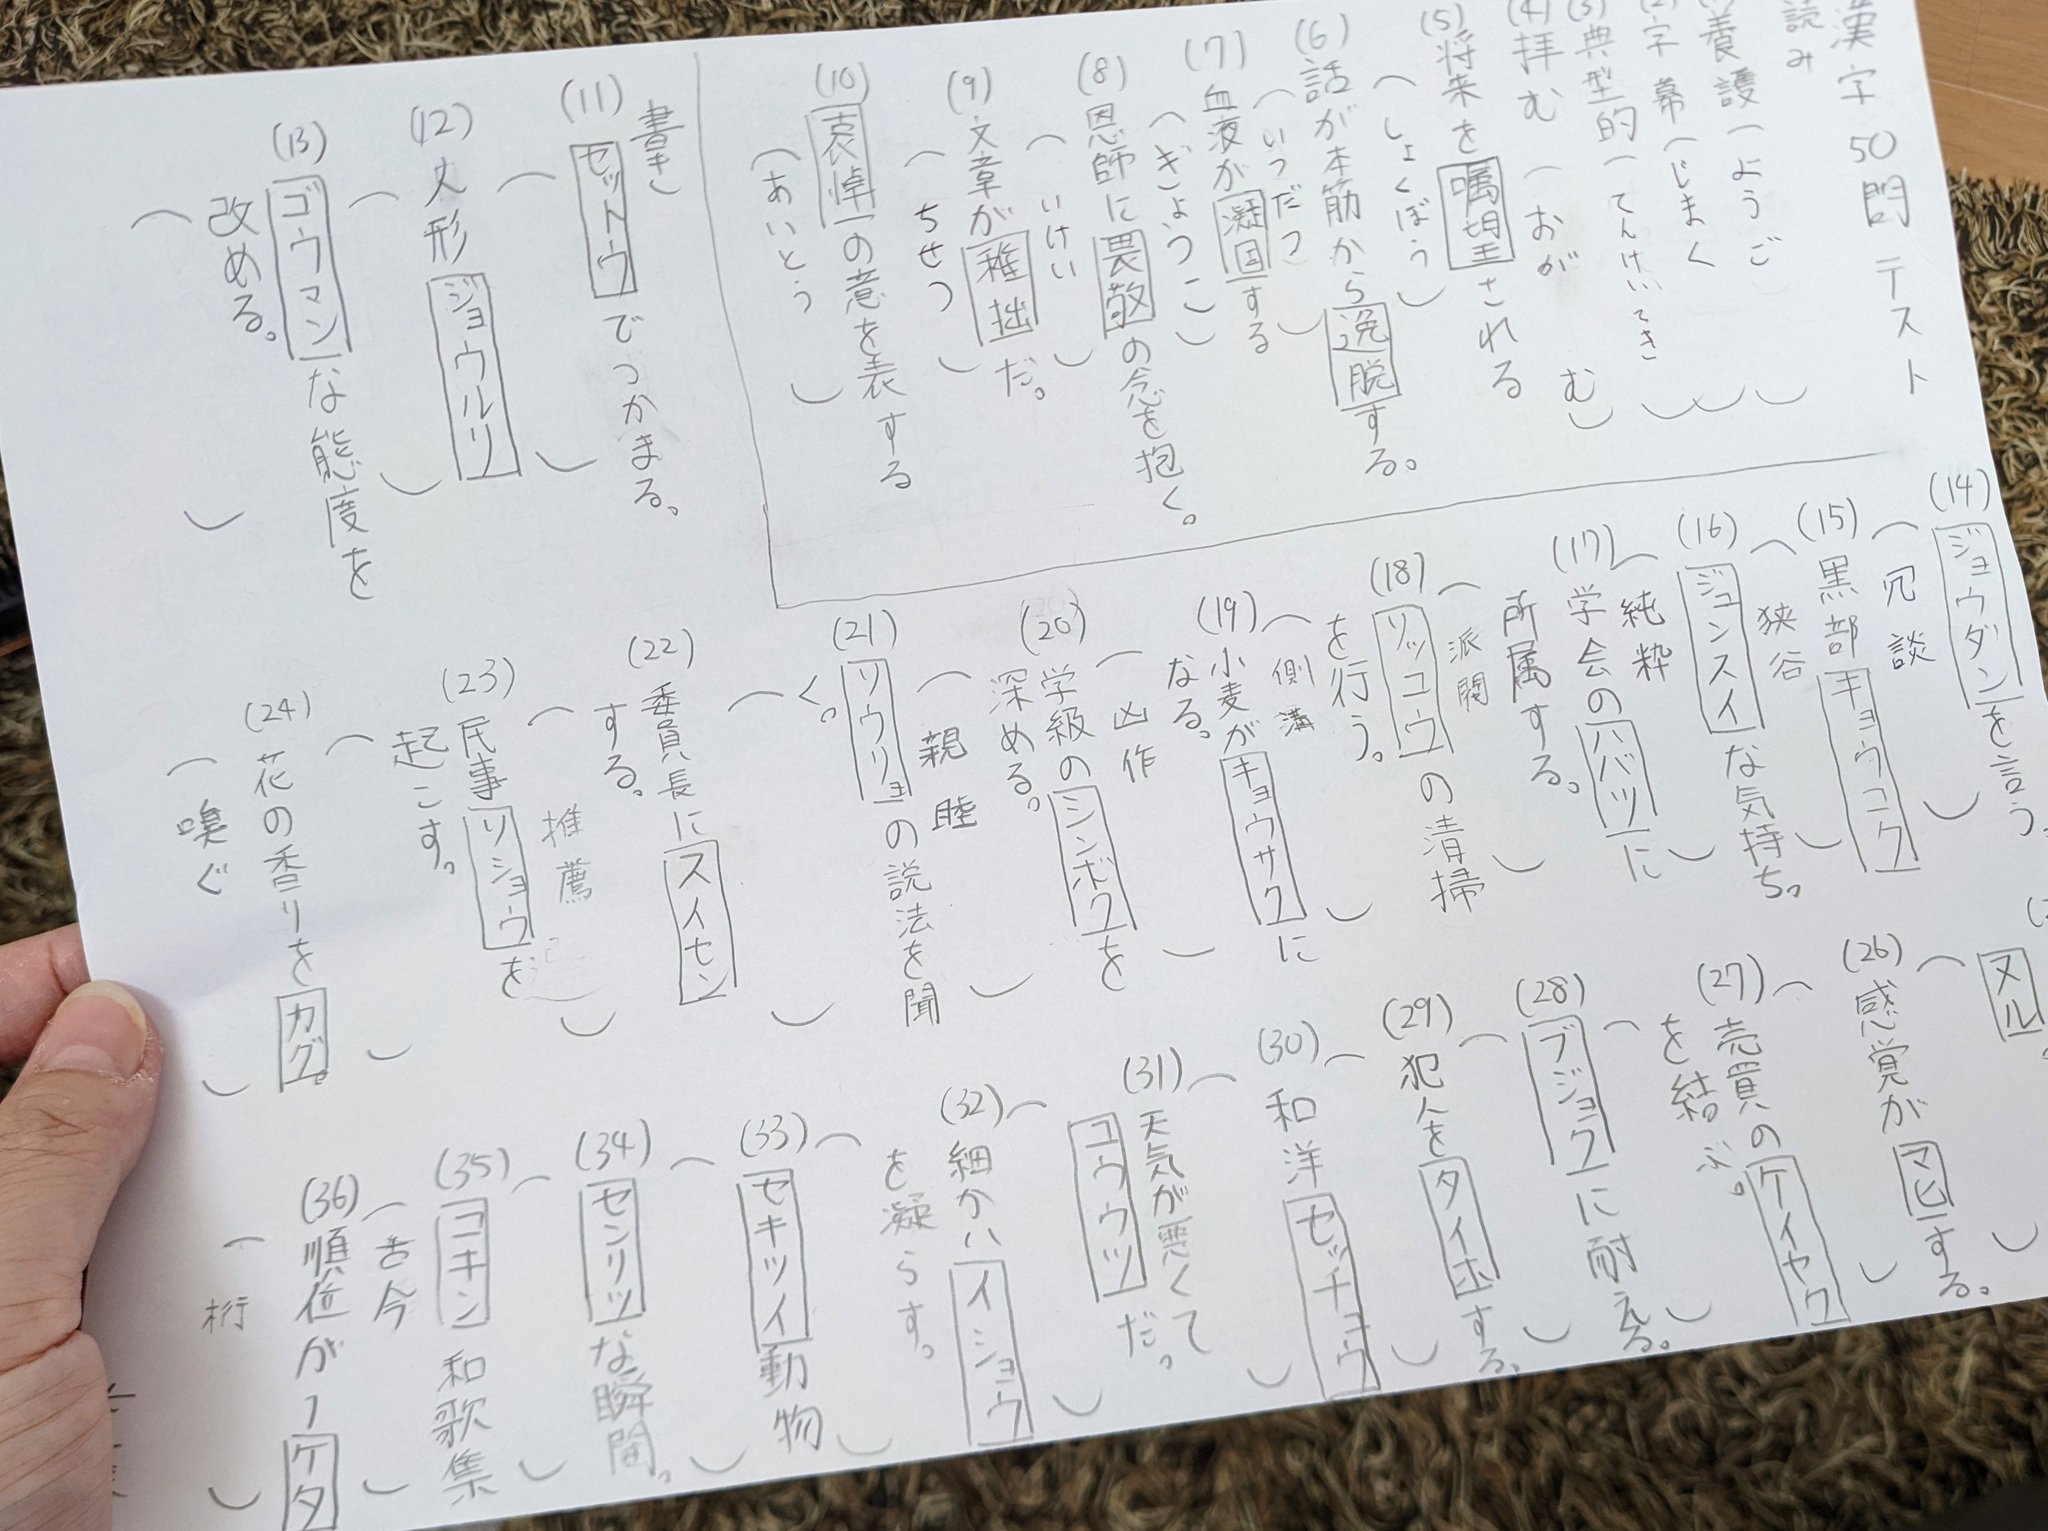 漢字50問テスト
読み
養護（ようご）
字幕（じまく）
(3)典型的（てんけいてき）
(4)拝む（おがむ）
(5)将来を嘱望される
（しょくぼう）
(6)話が本筋から逸脱する。
（いつだつ）
(7)血液が凝固する
（ぎょうこ）
(8)恩師に畏敬の念を抱く。
（いけい）
(9)文章が稚拙だ。
（ちせつ）
(10)哀悼の意を表する
（あいとう）
書き
(11)セットウでつかまる。
（　）
(12)人形ジョウルリ
（　）
(13)ゴウマンな態度を
改める。
（　）
(14)ジョウダンを言う。
（冗談）
(15)黒部キョウコク
（狭谷）
(16)ジュンスイな気持ち。
（純粋）
(17)学会のハバツに
所属する。
（派閥）
(18)ソッコウの清掃
を行う。
（側溝）
(19)小麦がキョウサクに
なる。
（凶作）
(20)学級のシンボクを
深める。
（親睦）
(21)ソウリョの説法を聞
く。
（　）
(22)委員長にスイセン
する。
（推薦）
(23)民事ソショウを
起こす。
（　）
(24)花の香りをカグ。
（嗅ぐ）
ヌル。
（　）
(26)感覚がマヒする。
（　）
(27)売買のケイヤク
を結ぶ。
（　）
(28)ブジョクに耐える。
（　）
(29)犯人をタイホする。
（　）
(30)和洋セッチュウ
（　）
(31)天気が悪くて
コウウツだ。
（　）
(32)細かいイショウ
を凝らす。
（　）
(33)セキツイ動物
（　）
(34)センリツな瞬間。
（　）
(35)コキン和歌集
（古今）
(36)順位が1ケタ
（桁）